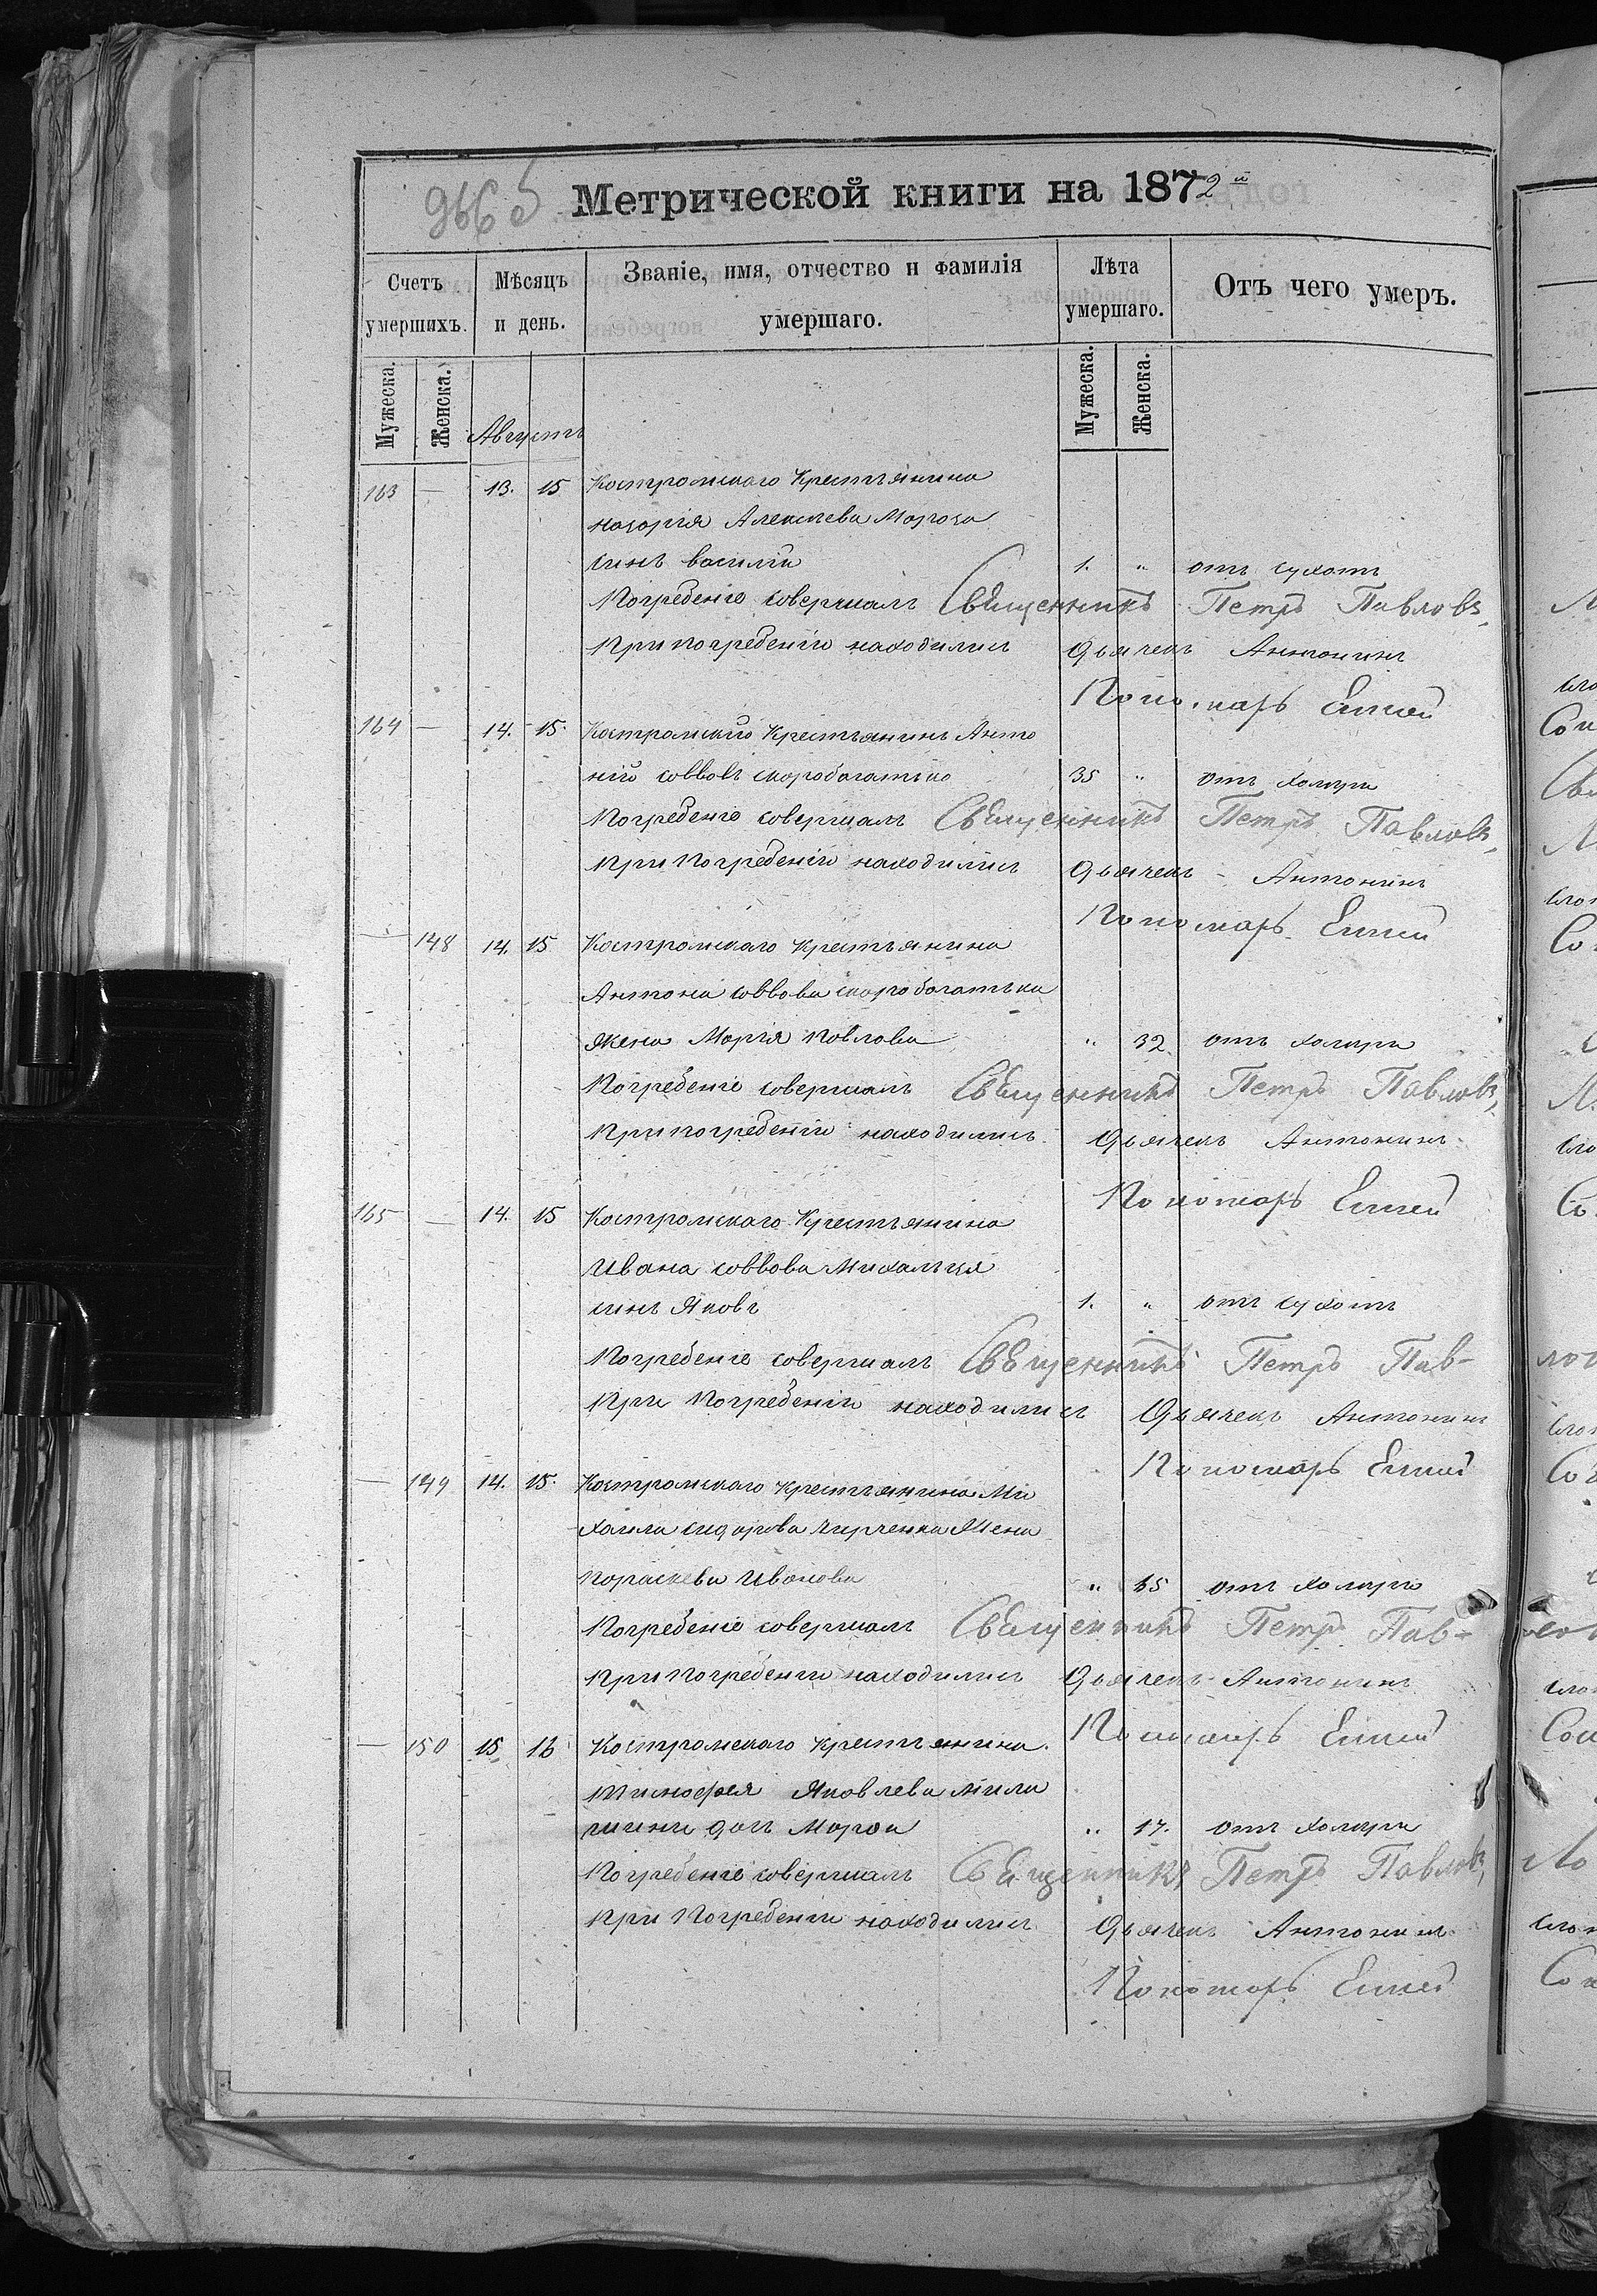 Метрической книги на 1872й
Счетъ умершихъ.
Мѣсяцъ и день.
Званіе, имя, отчество и фамилія умершаго.
Лѣта умершаго.
Отъ чего умеръ.
Мужеска. Женска. Августъ Мужеска. Женска.
163 — 13. 15 Костромскаго Крестьянина
назорія Алексѣева Мороза
синъ василій 1. „ отъ сухотъ
Погребеніе совершалъ Священникъ Петръ Павловъ,
При погребеніи находились Дьячекъ Антонинъ
Пономарь
164 — 14. 15. Костромскій Крестьянинъ Анто
ній соввовъ скоробогатько 35 „ отъ холиры
Погребеніе совершалъ Священникъ Петръ Павловъ,
При Погребеніи находились Дьячекъ - Антонинъ
Пономарь
— 148 14. 15 Костромскаго крестьянина
Антона соввова скоробогатька
жена Марія Повлова „ 32. отъ холиры
Погребеніе совершалъ Священникъ Петръ Павловъ,
При погребеніи находились Дьячекъ Антонинъ
Пономарь
165 — 14. 15 Костромскаго Крестьянина
Ивана соввова Михальця
синъ Яковъ 1. „ отъ сухотъ
Погребеніе совершалъ Священникъ Петръ Пав-
При Погребеніи находились Дьячекъ Антонинъ
Пономарь
— 149 14. 15. Костромскаго крестьянина Ми
хаила сидорова Жена
Пораскева Иванова „ отъ холиры
Погребеніе совершалъ Священникъ Петръ Пав-
При Погребеніи находились Дьячекъ Антонинъ
Пономарь
— 150 15 16 Костромскаго крестьянина
тимофея Яковлева
дочь „ 17. отъ холиры
Погребеніе совершалъ Священникъ Петръ Павловъ,
При Погребеніи находились Дьячекъ Антонинъ
Пономарь